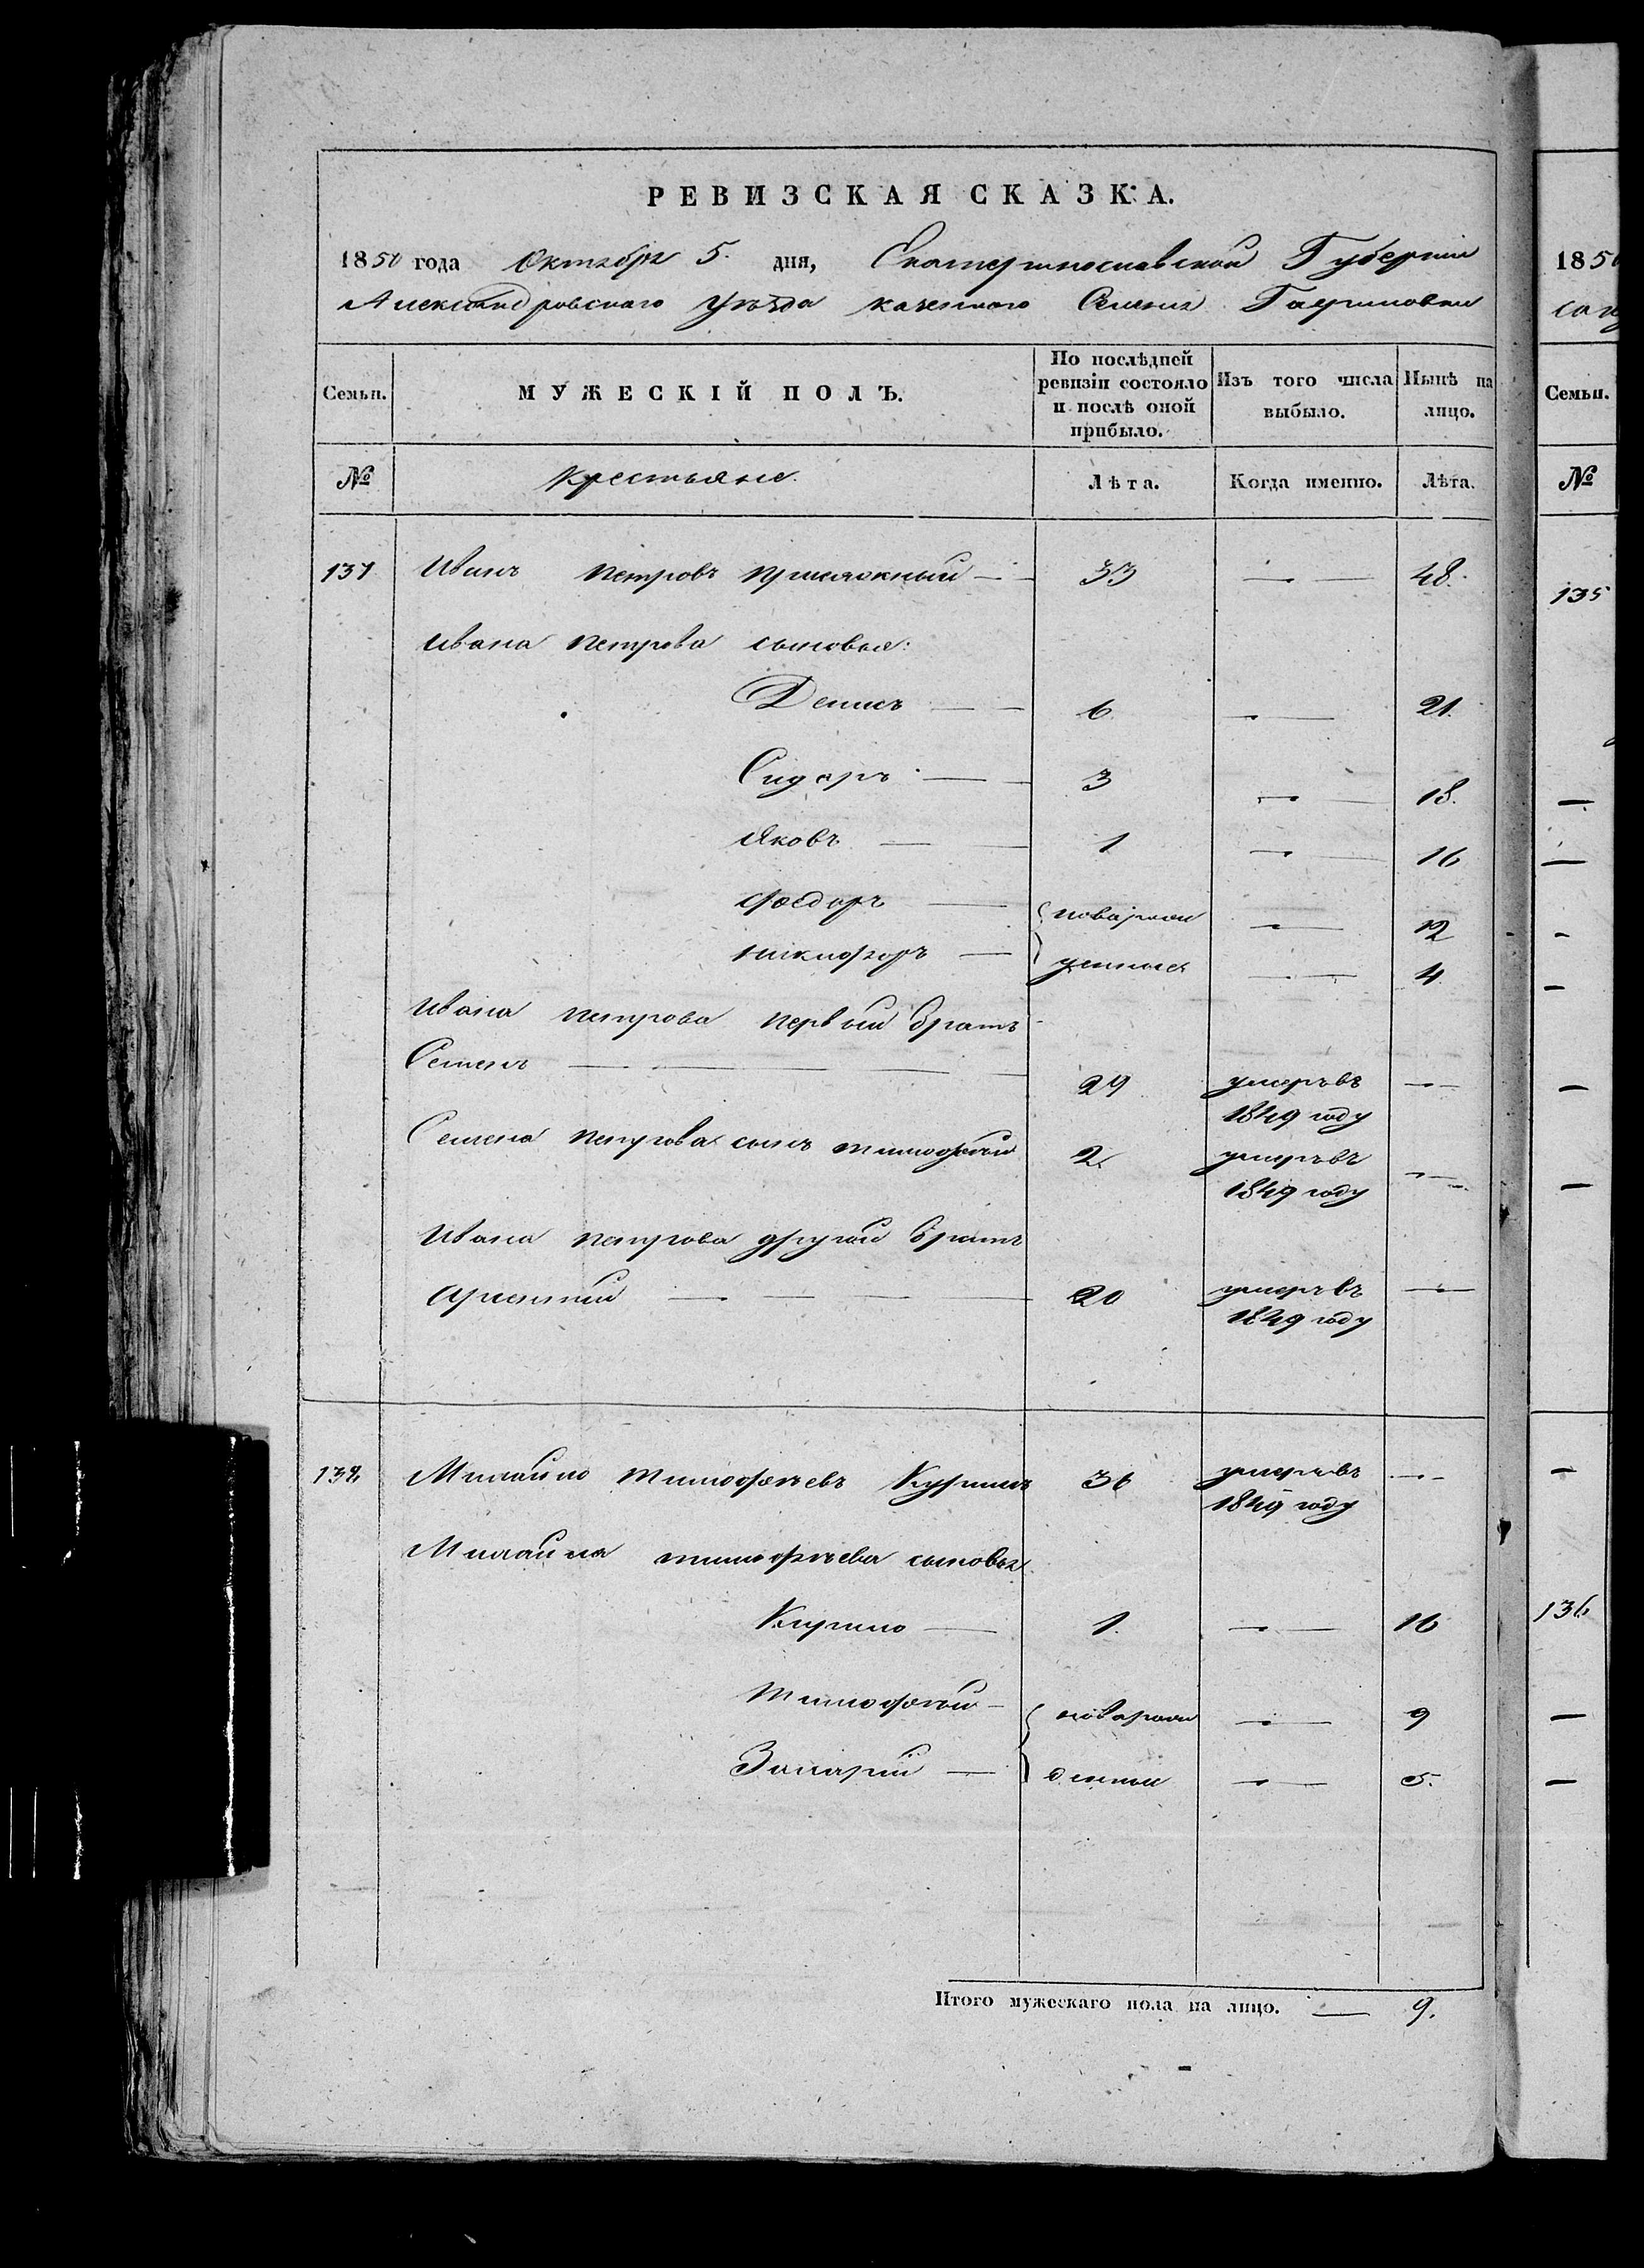 РЕВИЗСКАЯ СКАЗКА.
1850 года Октября 5. дня, Екатеринославской Губернии
Александровскаго Уѣзда казеннаго Селенія Гавриловки
Семьи. МУЖЕСКІЙ ПОЛЪ. По послѣдней ревизіи состояло и послѣ оной прибыло. Изъ того числа выбыло. Нынѣ на лицо.
№ Крестьяне. Лѣта. Когда именно. Лѣта.
131 Иванъ Петровъ Присяжный — 33 — 48.
Ивана Петрова сыновья:
Денисъ — 6 — 21.
Сидоръ — 3 — 18.
Яковъ — 1 — 16
Федоръ — новорож — 12
Никифоръ — денные — 4
Ивана Петрова первый братъ
Семенъ — 29 умеръ въ —
1849 году
Семена Петрова сынъ Тимофей 2. умеръ въ —
1849 году
Ивана Петрова другой братъ
Арсентий — 20 умеръ въ —
1849 году
132 Михайло Тимофѣевъ 36 умеръ въ —
1849 году
Михайла Тимофѣева сыновья
Кирило — 1. — 16
Тимофѣй — новорож — 9
Захарій — денныи — 5.
Итого мужескаго пола на лицо. — 9.
1850
Семьи.
№
135
136